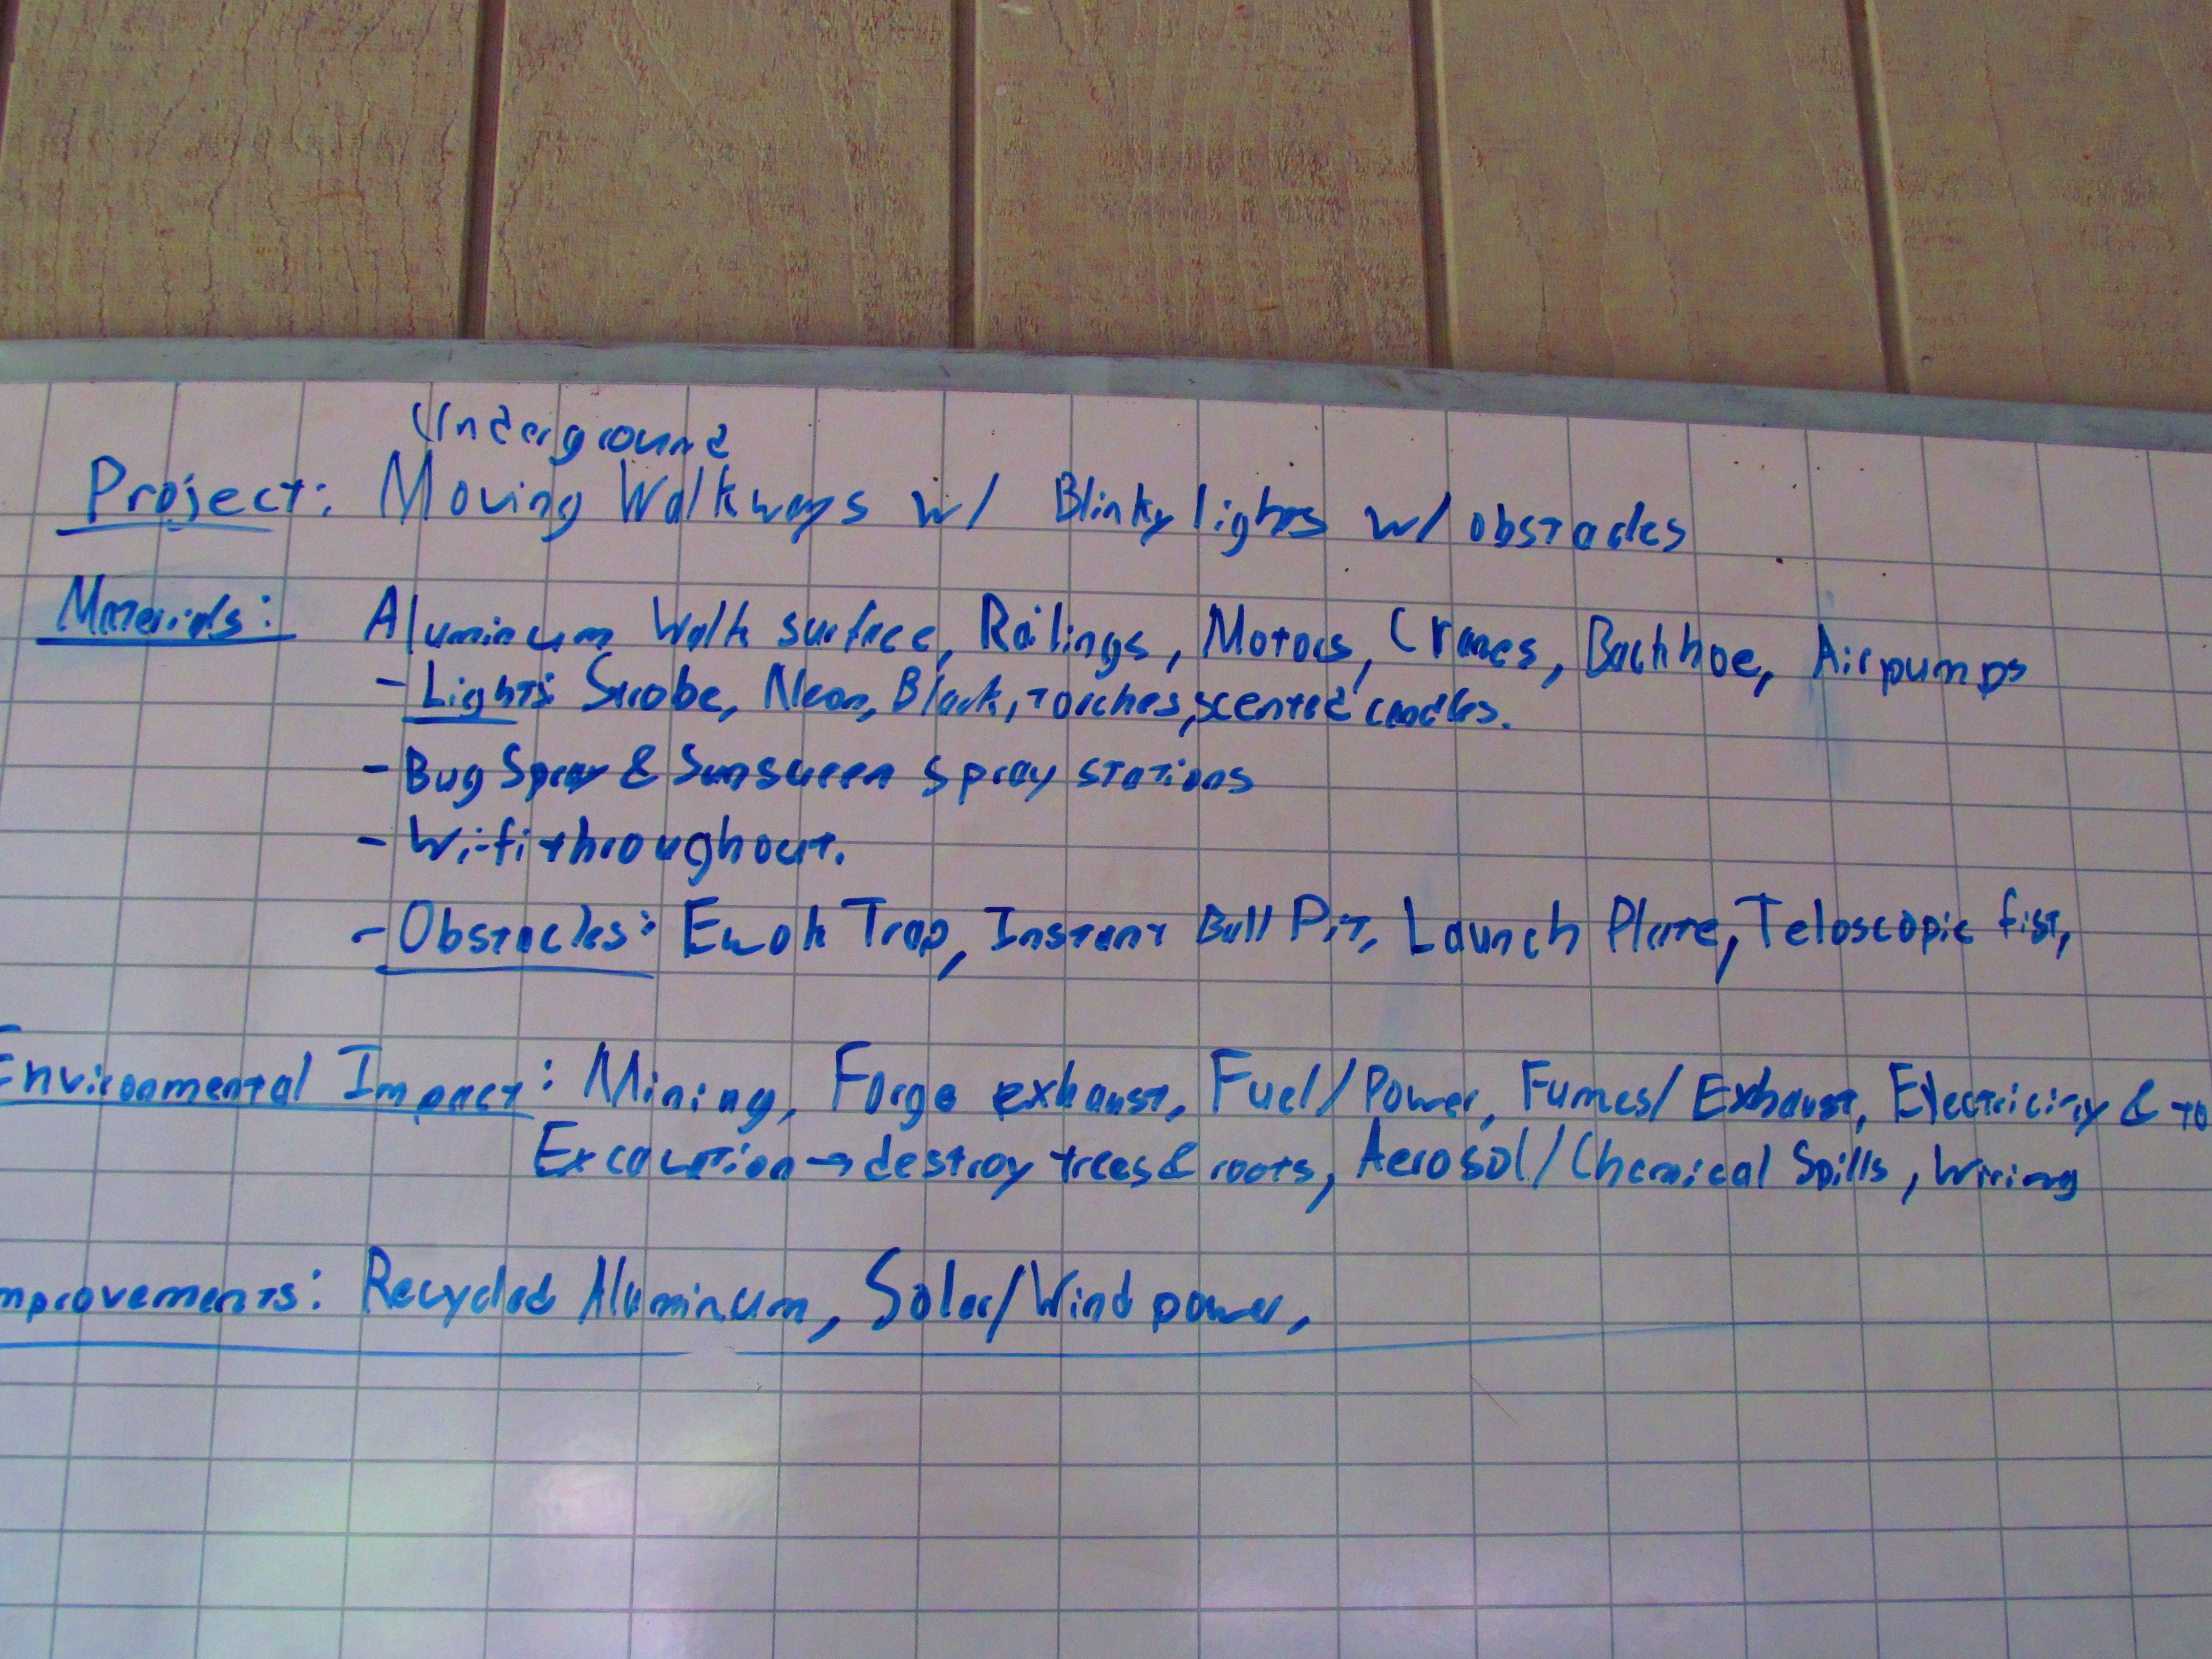 Underground
Project: Moving Walkways w/ Blinky lights w/ obstacles
Materials: Aluminum Walk surface, Railings, Motors, Cranes, Backhoe, Air pumps
- Lights: Strobe, Neon, Black, torches, scented candles.
- Bug Spray & Sunscreen spray stations
- Wi-fi throughout.
- Obstacles: Ewok Trap, Instant Ball Pit, Launch Plate, Teloscopic fist,
Environmental Impact: Mining, Forge exhaust, Fuel/Power, Fumes/Exhaust, Electricity & to
Excavation → destroy trees & roots, Aerosol/Chemical Spills, Wiring
mprovements: Recycled Aluminum, Solar/Wind power,